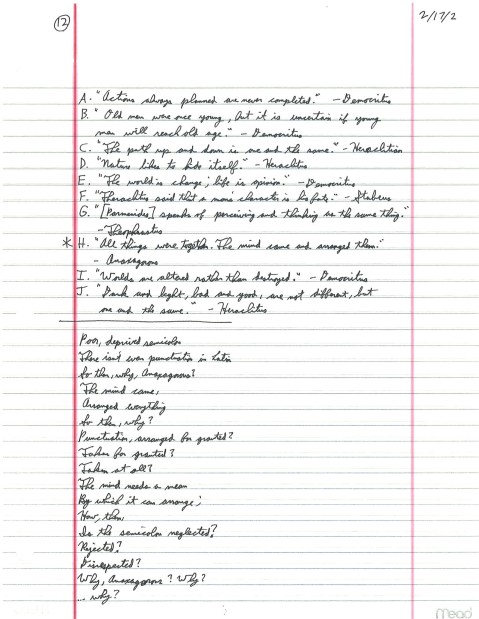 12
2/17/2
A. "Actions always planned are never completed." - Democritus
B. "Old men were once young, but it is uncertain if young
men will reach old age." - Democritus
C. "The path up and down is one and the same." - Heraclitus
D. "Nature likes to hide itself." - Heraclitus
E. "The world is change; life is opinion." - Democritus
F. "Heraclitus said that a man's character is his fate." - Stobaeus
G. "[Parmenides] speaks of perceiving and thinking as the same thing."
- Theophrastus
* H. "All things were together. The mind came and arranged them."
- Anaxagoras
I. "Worlds are altered rather than destroyed." - Democritus
J. "Dark and light, bad and good, are not different, but
one and the same." - Heraclitus
Poor, deprived semicolon
There isn't even punctuation in Latin
So then, why, Anaxagoras?
The mind came,
Arranged everything
So then, why?
Punctuation, arranged for granted?
Taken for granted?
Taken at all?
The mind needs a mean
By which it can arrange;
How, then,
Is the semicolon neglected?
Rejected?
Disrespected?
Why, Anaxagoras? Why?
... why?
Mead